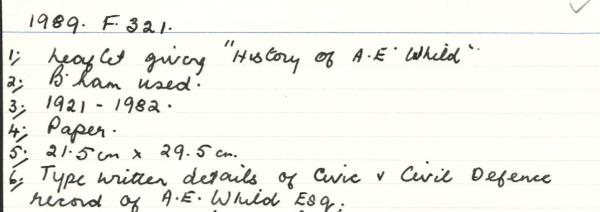 1989. F. 321.
1; Leaflet giving "History of A.E. Whild".
2; B'ham used.
3; 1921 - 1982.
4; Paper.
5; 21.5 cm x 29.5 cm.
6; Type written details of Civic & Civil Defence
record of A.E. Whild Esq;